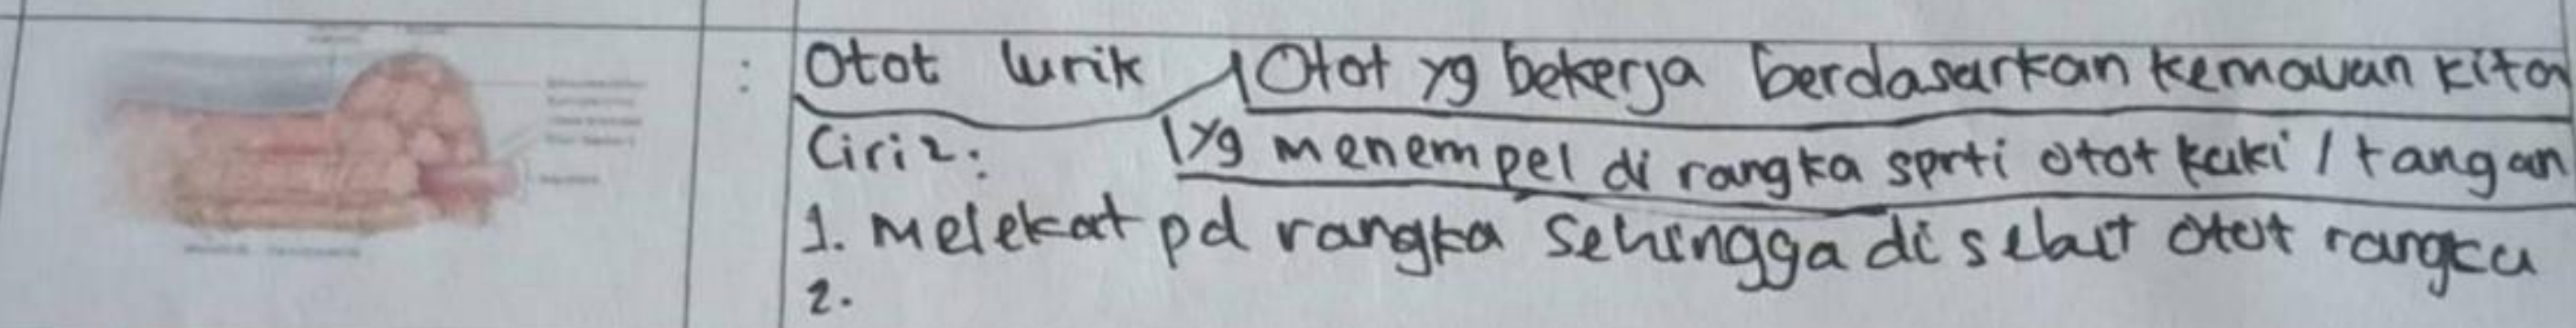 : Otot lurik Otot yg bekerja berdasarkan kemauan kita
Ciri2: yg menempel di rangka sprti otot kaki / tangan
1. Melekat pd rangka sehingga di sebut otot rangka
2.